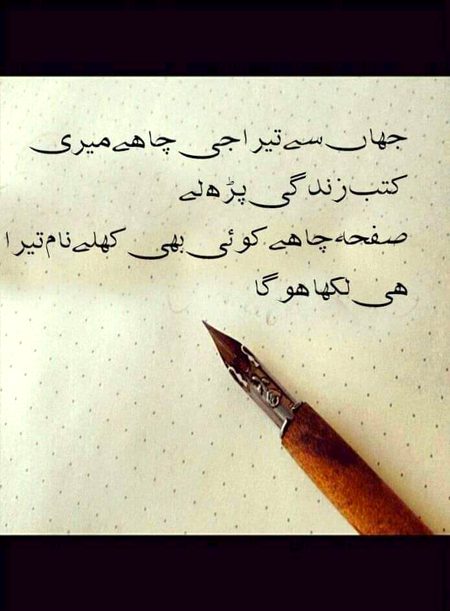 جهاں سے تیرا جی چاهے میری
کتب زندگی پڑھ لے
صفحہ چاهے کوئی بھی کھلے نام تیرا
هی لکھا هو گا